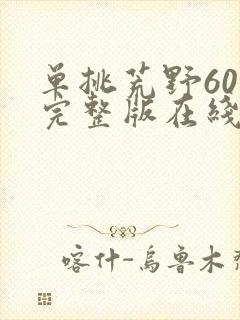 单挑荒野60
完整版在线
喀什-乌鲁木